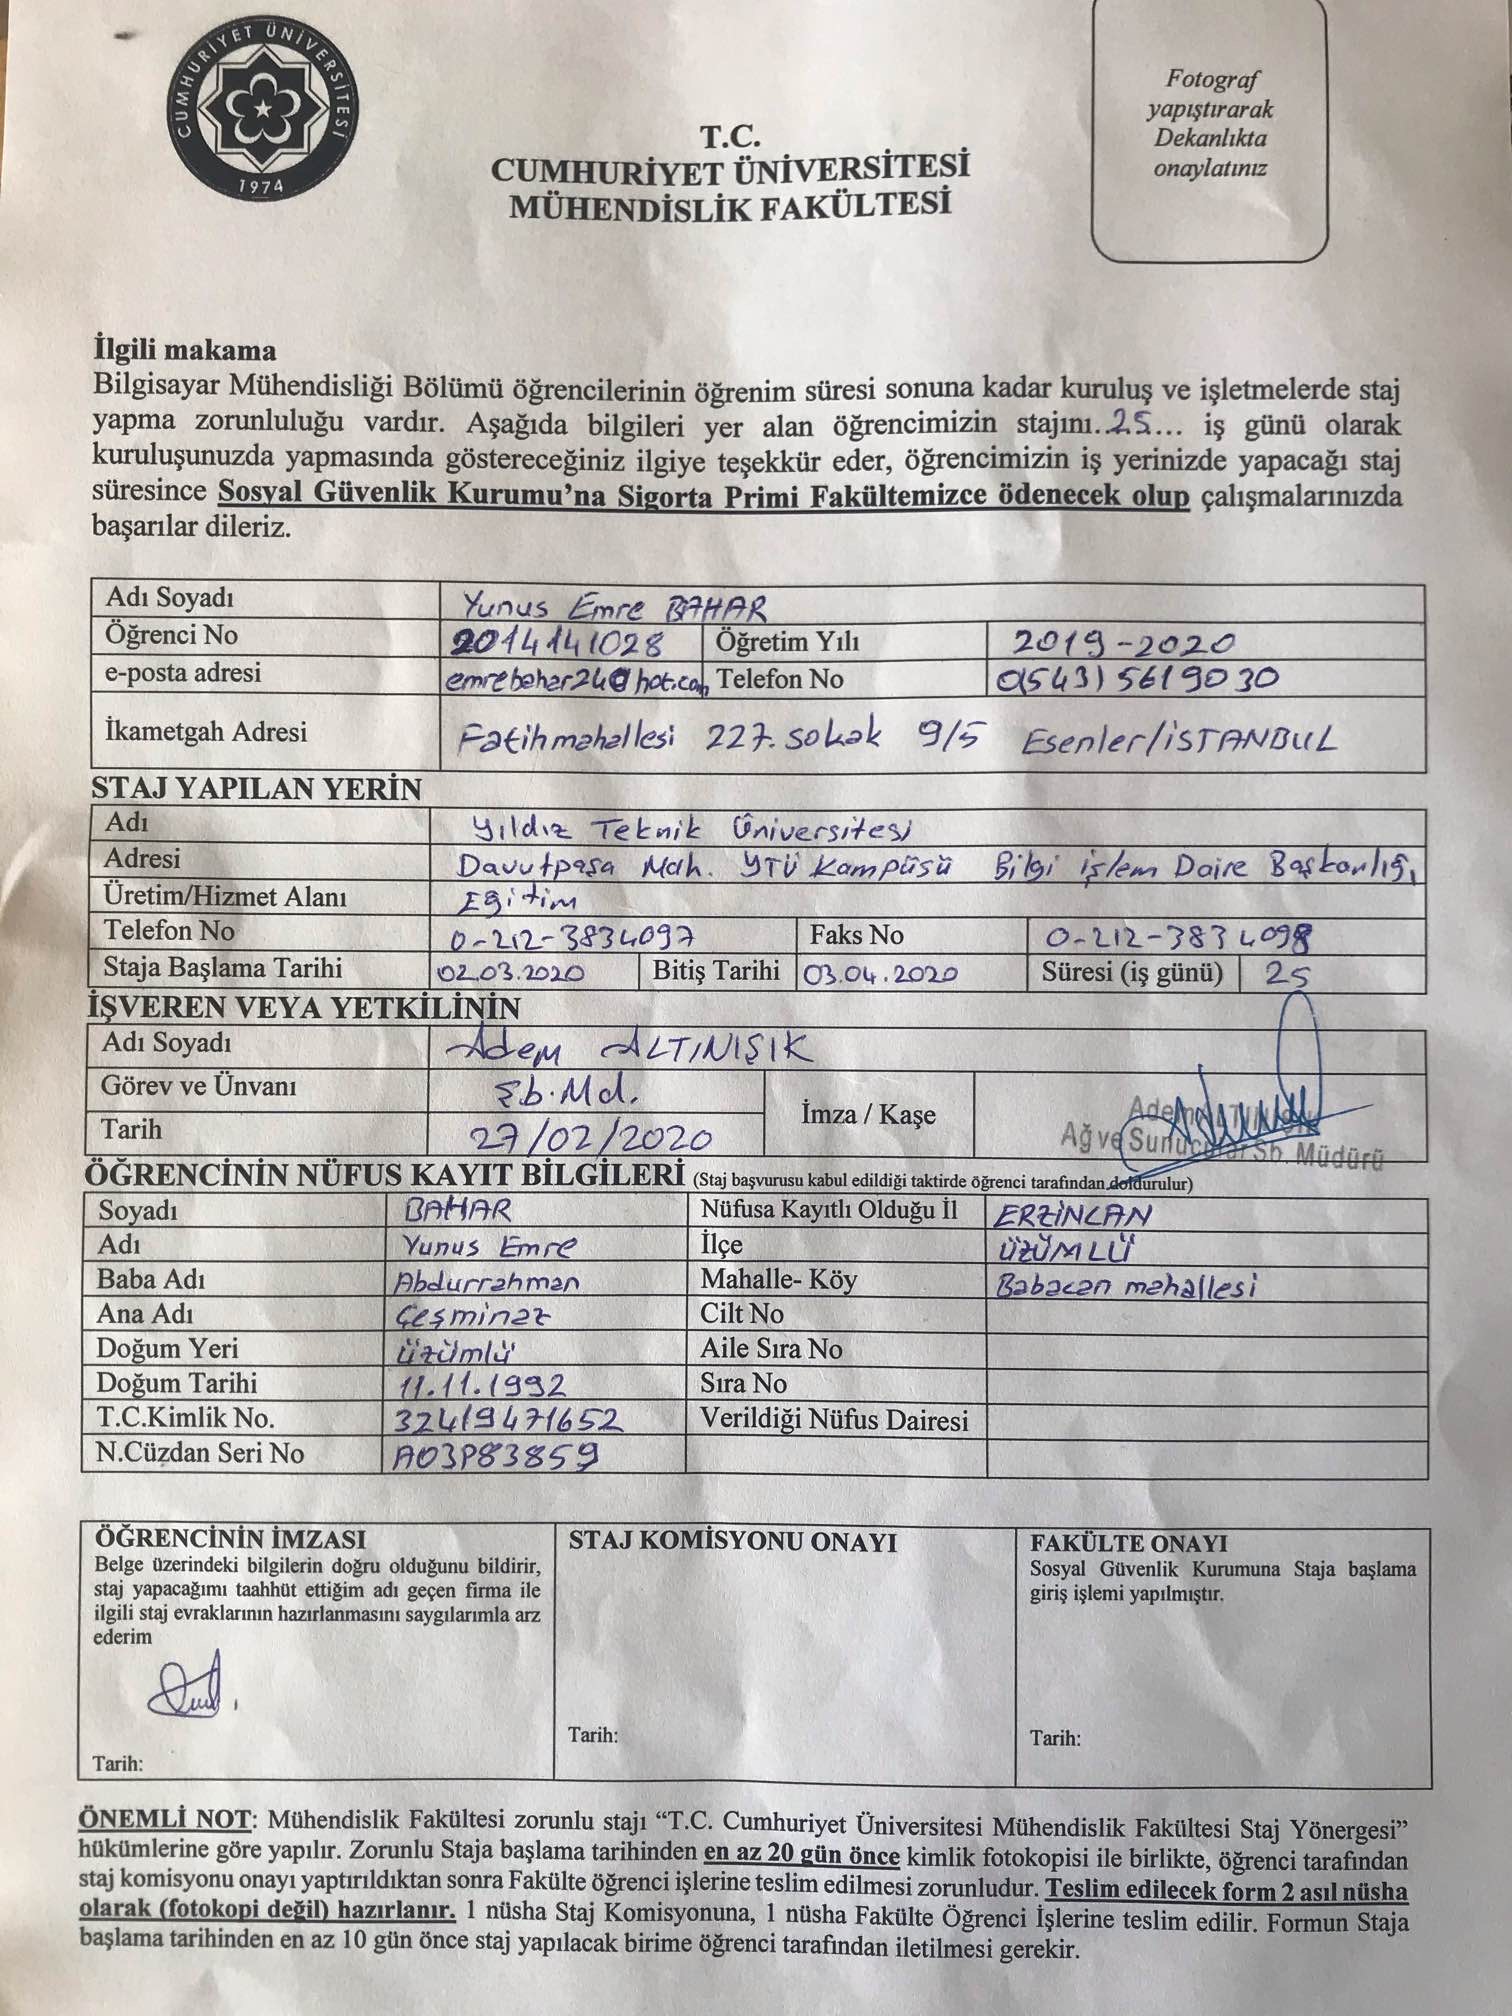 CUMHURİYET ÜNİVERSİTESİ
1974
Fotograf
yapıştırarak
Dekanlıkta
onaylatınız
T.C.
CUMHURİYET ÜNİVERSİTESİ
MÜHENDİSLİK FAKÜLTESİ
İlgili makama
Bilgisayar Mühendisliği Bölümü öğrencilerinin öğrenim süresi sonuna kadar kuruluş ve işletmelerde staj
yapma zorunluluğu vardır. Aşağıda bilgileri yer alan öğrencimizin stajını..25... iş günü olarak
kuruluşunuzda yapmasında göstereceğiniz ilgiye teşekkür eder, öğrencimizin iş yerinizde yapacağı staj
süresince Sosyal Güvenlik Kurumu'na Sigorta Primi Fakültemizce ödenecek olup çalışmalarınızda
başarılar dileriz.
Adı Soyadı Yunus Emre BAHAR
Öğrenci No 2014141028 Öğretim Yılı 2019-2020
e-posta adresi emrebahar24@hot.com Telefon No 0(543) 5619030
İkametgah Adresi Fatih mahallesi 227. sokak 9/5 Esenler/İSTANBUL
STAJ YAPILAN YERİN
Adı Yıldız Teknik Üniversitesi
Adresi Davutpaşa Mah. YTÜ Kampüsü Bilgi işlem Daire Başkanlığı
Üretim/Hizmet Alanı Eğitim
Telefon No 0-212-3834097 Faks No 0-212-3834098
Staja Başlama Tarihi 02.03.2020 Bitiş Tarihi 03.04.2020 Süresi (iş günü) 25
İŞVEREN VEYA YETKİLİNİN
Adı Soyadı Adem ALTINIŞIK
Görev ve Ünvanı Şb. Md.
Tarih 27/02/2020 İmza / Kaşe
Adem ALTINIŞIK
Ağ ve Sunucular Şb. Müdürü
ÖĞRENCİNİN NÜFUS KAYIT BİLGİLERİ (Staj başvurusu kabul edildiği taktirde öğrenci tarafından doldurulur)
Soyadı BAHAR Nüfusa Kayıtlı Olduğu İl ERZİNCAN
Adı Yunus Emre İlçe ÜZÜMLÜ
Baba Adı Abdurrahman Mahalle- Köy Babacan mahallesi
Ana Adı Çeşminaz Cilt No
Doğum Yeri üzümlü Aile Sıra No
Doğum Tarihi 11.11.1992 Sıra No
T.C.Kimlik No. 32419471652 Verildiği Nüfus Dairesi
N.Cüzdan Seri No A03P83859
ÖĞRENCİNİN İMZASI
Belge üzerindeki bilgilerin doğru olduğunu bildirir,
staj yapacağımı taahhüt ettiğim adı geçen firma ile
ilgili staj evraklarının hazırlanmasını saygılarımla arz
ederim
Tarih:
STAJ KOMİSYONU ONAYI
Tarih:
FAKÜLTE ONAYI
Sosyal Güvenlik Kurumuna Staja başlama
giriş işlemi yapılmıştır.
Tarih:
ÖNEMLİ NOT: Mühendislik Fakültesi zorunlu stajı “T.C. Cumhuriyet Üniversitesi Mühendislik Fakültesi Staj Yönergesi”
hükümlerine göre yapılır. Zorunlu Staja başlama tarihinden en az 20 gün önce kimlik fotokopisi ile birlikte, öğrenci tarafından
staj komisyonu onayı yaptırıldıktan sonra Fakülte öğrenci işlerine teslim edilmesi zorunludur. Teslim edilecek form 2 asıl nüsha
olarak (fotokopi değil) hazırlanır. 1 nüsha Staj Komisyonuna, 1 nüsha Fakülte Öğrenci İşlerine teslim edilir. Formun Staja
başlama tarihinden en az 10 gün önce staj yapılacak birime öğrenci tarafından iletilmesi gerekir.